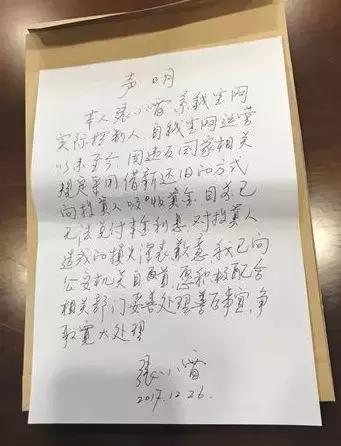 声明
本人张小雷系钱宝网
实际控制人,自钱宝网运营
以来至今因违反国家相关
规定采用借新还旧的方式
向投资人吸收资金,目前已
无法兑付本金利息,对投资人
造成的损失深表歉意,我已向
公安机关自首,愿积极配合
相关部门妥善处理善后事宜,争
取宽大处理
张小雷
2017.12.26.